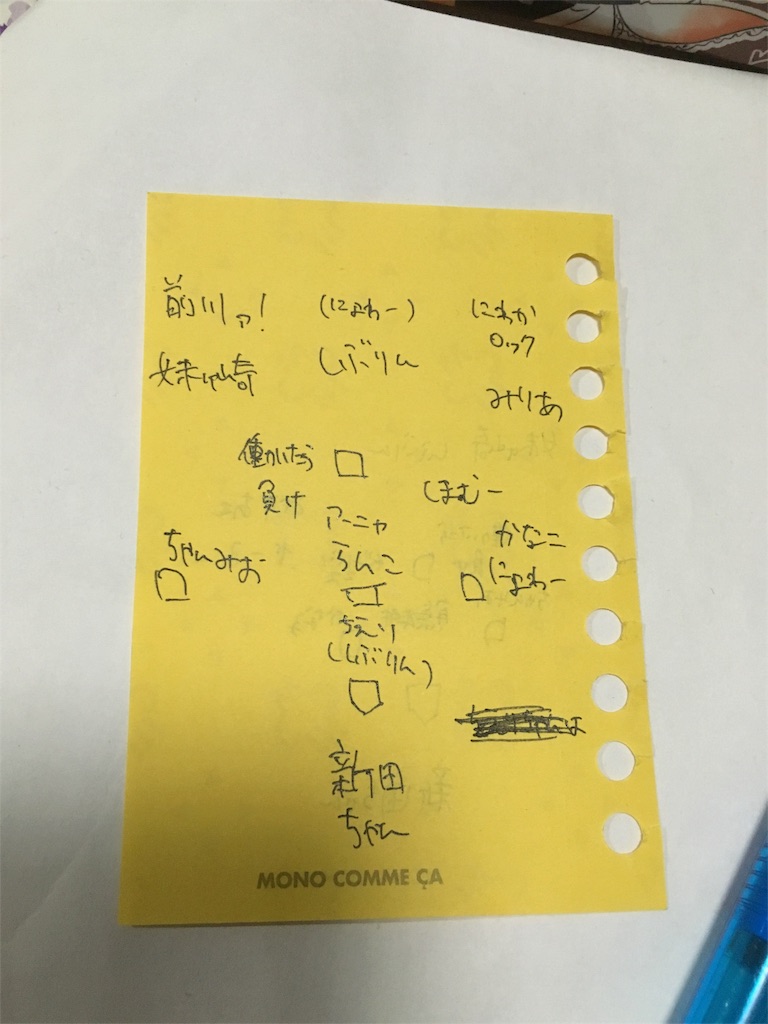 前川ァ!
(にょわー)
にわか
ロック
妹ヶ崎
しぶりん
みりあ
働いたら
負け
しまむー
アーニャ
らんこ
かなこ
にょわー
ちゃんみお
ちえり
(しぶりん)
新田
ちゃん
MONO COMME ÇA